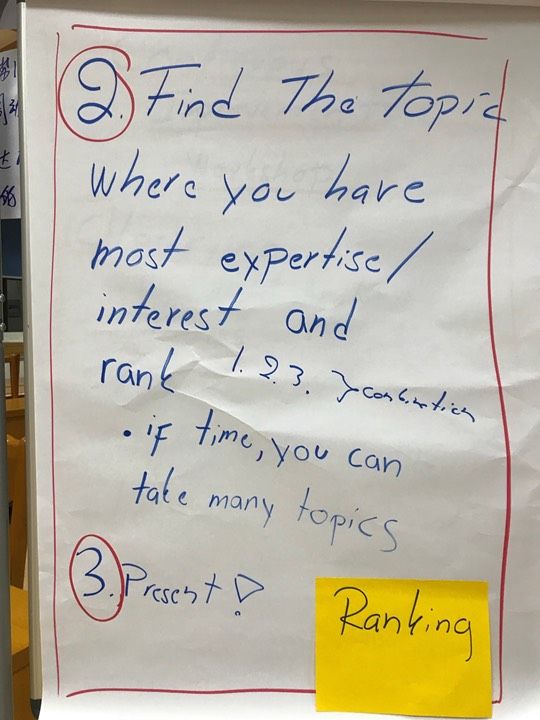 2. Find The topic
where you have
most expertise/
interest and
rank 1. 2. 3. } combination
• if time, you can
take many topics
3. Present!
Ranking